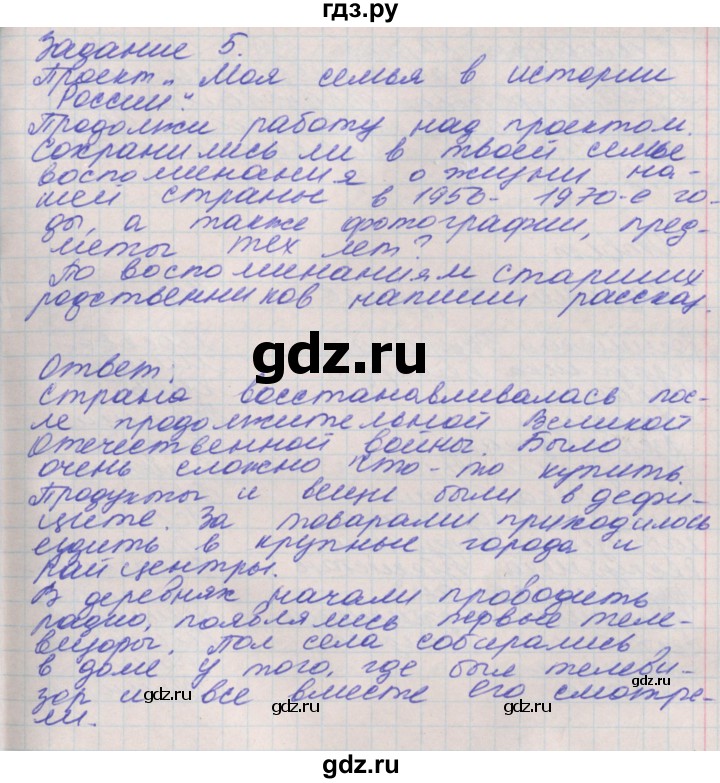 гдз.ру
Задание 5.
Проект „Моя семья в истории
России".
Продолжи работу над проектом.
Сохранились ли в твоей семье
воспоминания о жизни на-
шей страны в 1950- 1970-е го-
ды, а также фотографии, пред-
меты тех лет?
По воспоминаниям старших
родственников напиши рассказ.
gdz.ru
Ответ:
Страна восстанавливалась пос-
ле продолжительной Великой
Отечественной войны. Было
очень сложно что-то купить.
Продукты и вещи были в дефи-
ците. За товарами приходилось
ездить в крупные города и
райцентры.
В деревнях начали проводить
радио, появлялись первые теле-
визоры. Пол села собирались
в доме у того, где был телеви-
зор и все вместе его смотре-
ли.
gdz.ru
gdz.ru
gdz.ru
gdz.ru